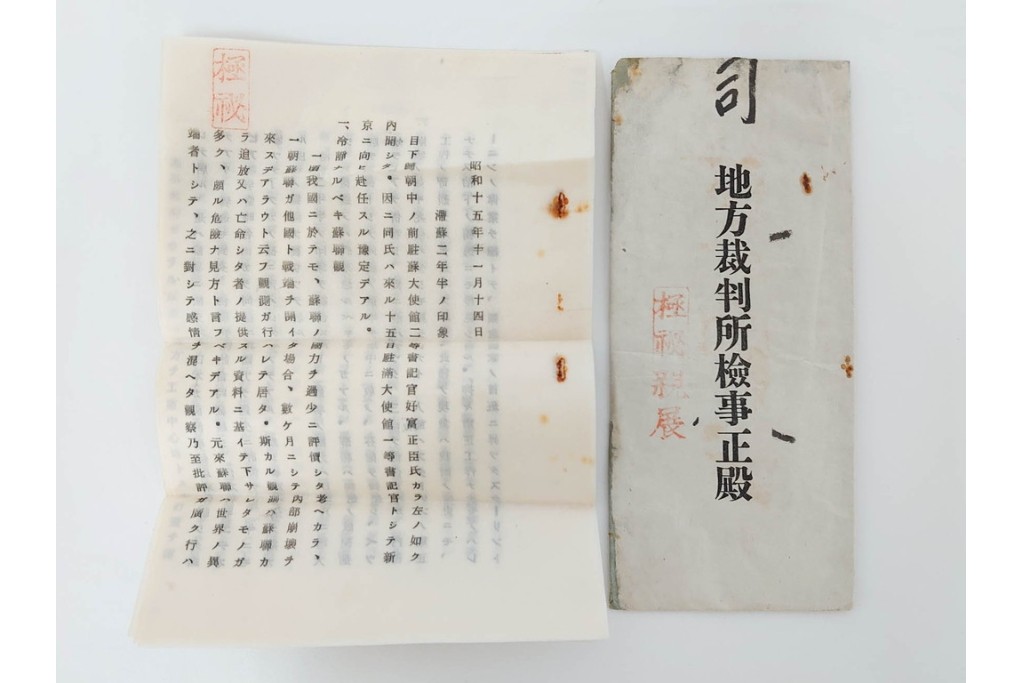 極
祕
昭和十五年十一月十四日
滯蘇二年半ノ印象
目下歸朝中ノ前駐蘇大使館二等書記官好富正臣氏カラ左ノ如ク
內聞シタ。因ニ同氏ハ來ル十五日駐滿大使館一等書記官トシテ新
京ニ向ヒ赴任スル豫定デアル。
一、冷靜ナルベキ蘇聯觀
一體我國ニ於テモ、蘇聯ノ國力チ過少ニ評價シタ考ヘカラ、
一朝蘇聯ガ他國ト戰端チ開イタ場合、數ケ月ニシテ內部崩壞チ
來スデアラウト云フ觀測ガ行ハレテ居タ。斯カル觀測ハ蘇聯カ
ラ追放又ハ亡命シタ者ノ提供スル資料ニ基イテ下サレタモノガ
多ク、頗ル危險ナ見方ト言フベキデアル。元來蘇聯ハ世界ノ異
端者トシテ、之ニ對シテ感情チ混ヘタ觀察乃至批評ガ廣ク行ハ
司
地方裁判所檢事正殿
極祕親展